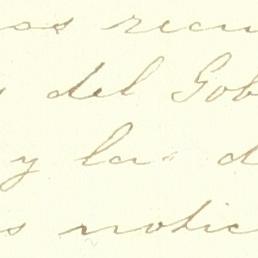 os recu
s del Gob
y la d
s notic